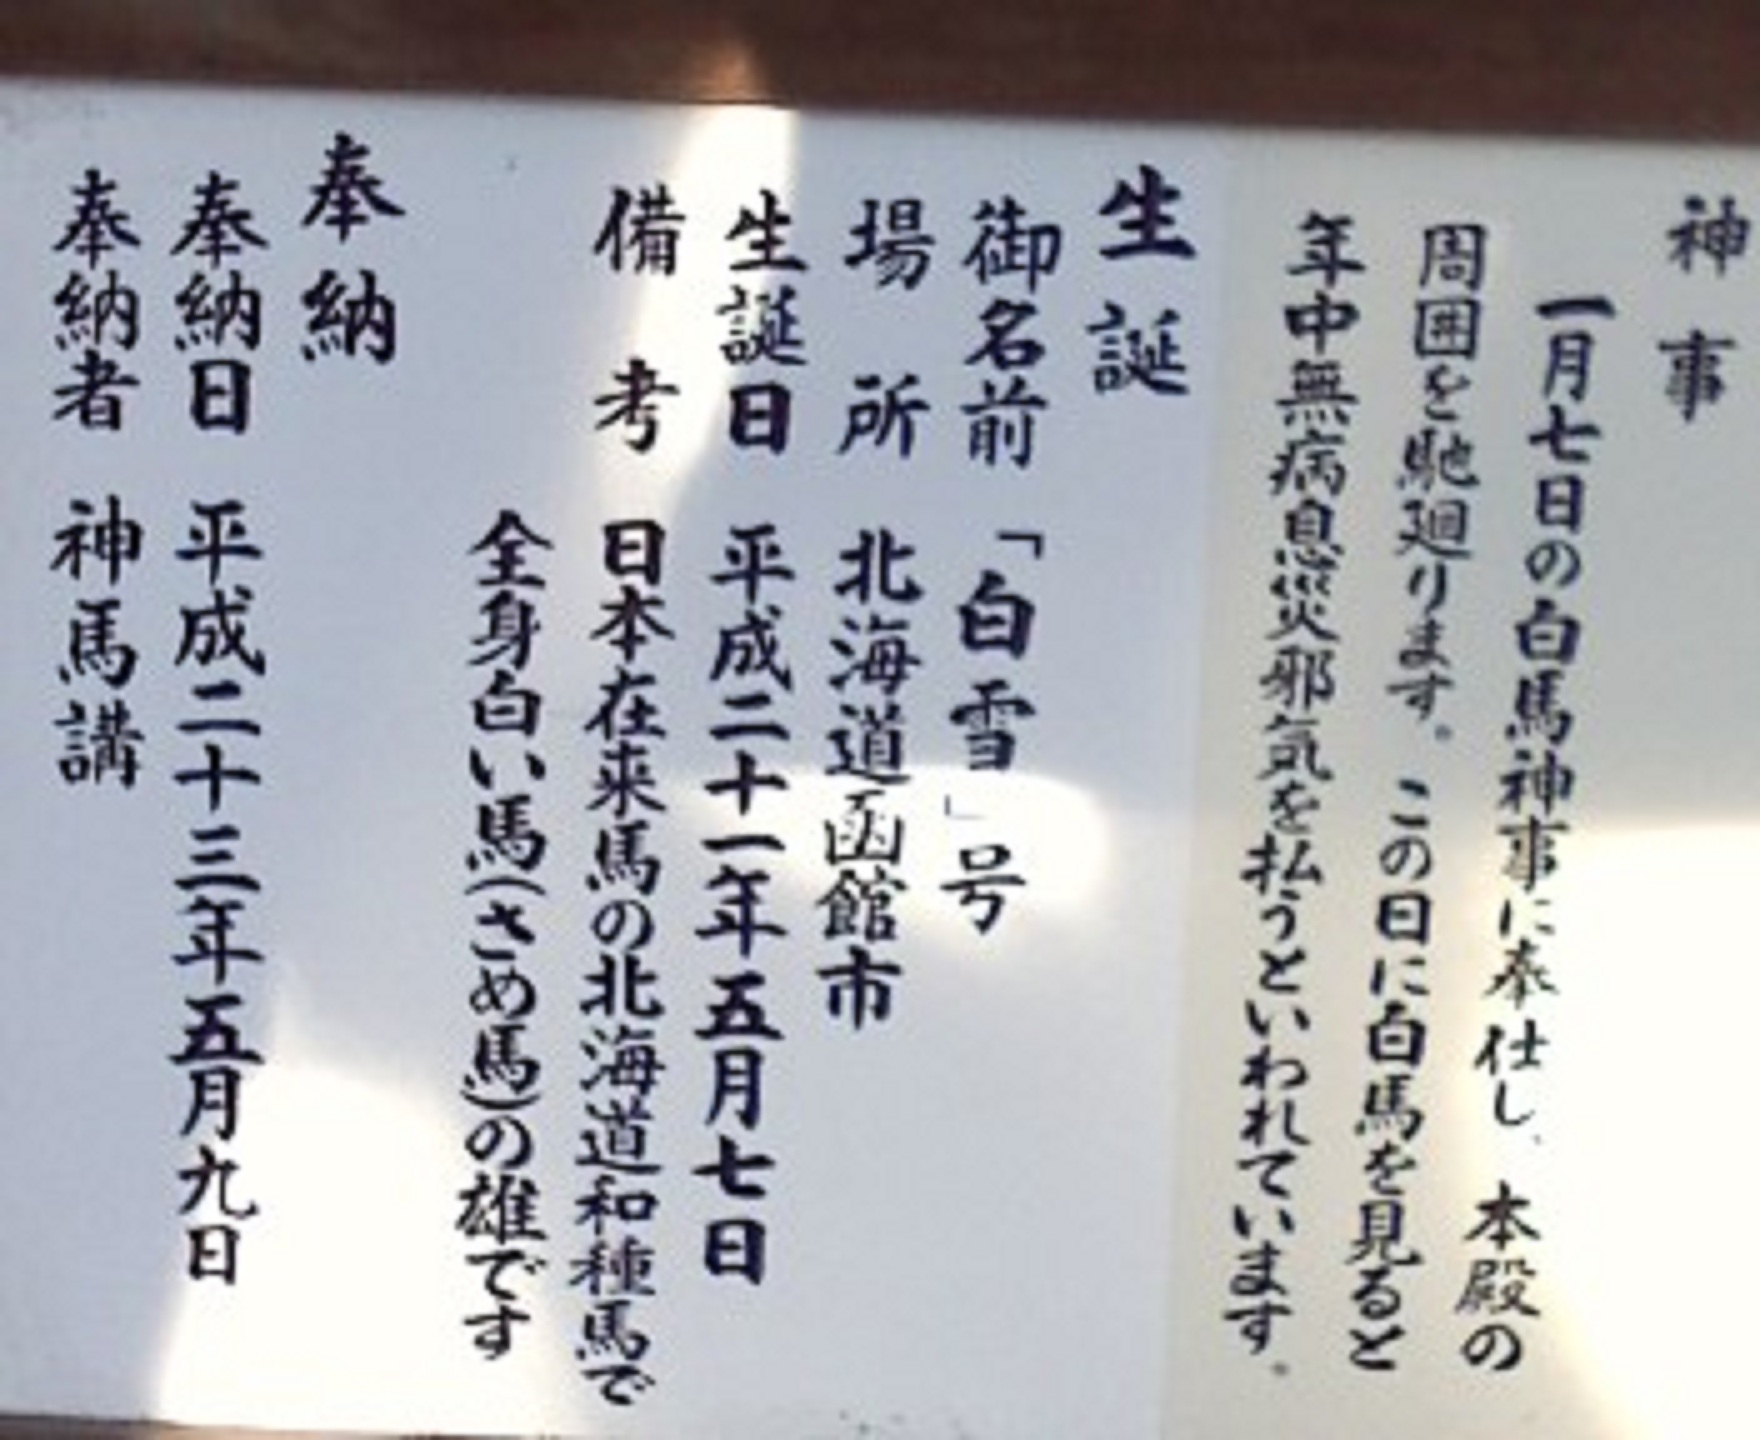 神事
一月七日の白馬神事に奉仕し、本殿の
周囲を馳廻ります。この日に白馬を見ると
年中無病息災邪気を払うといわれています。
生誕
御名前 「白雪」号
場所 北海道函館市
生誕日 平成二十一年五月七日
備考 日本在来馬の北海道和種馬で
全身白い馬(さめ馬)の雄です
奉納
奉納日 平成二十三年五月九日
奉納者 神馬講